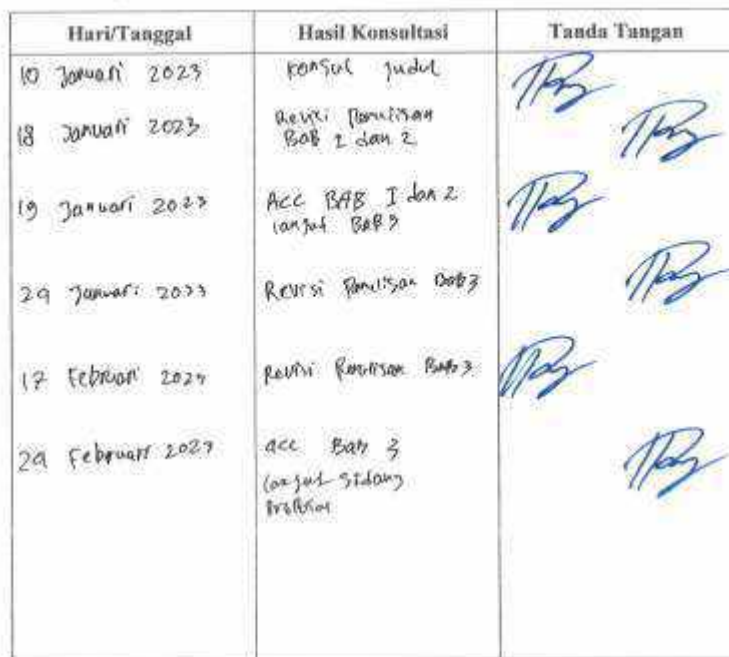 Hari/Tanggal Hasil Konsultasi Tanda Tangan
10 Januari 2023 Konsul Judul
18 Januari 2023 Revisi Penulisan
BAB 1 dan 2
19 Januari 2023 Acc BAB I dan 2
lanjut BAB 3
Januari 2023 Revisi Penulisan Bab 3
17 Februari 2023 Revisi Penulisan Bab 3
Februari 2023 acc Bab 3
lanjut sidang